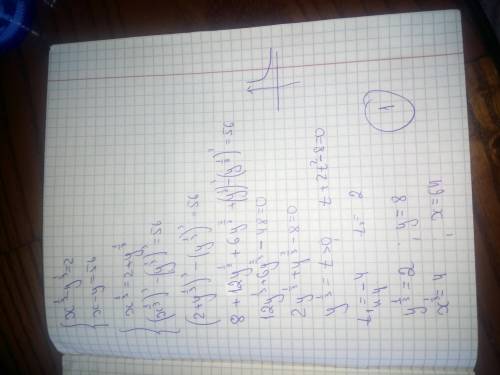 { x^{1/3} - y^{1/3} = 2
{ x - y = 56
{ x^{1/3} = 2 + y^{1/3}
{ (x^{1/3})^3 - (y^{1/3})^3 = 56
(2 + y^{1/3})^3 - (y^{1/3})^3 = 56
8 + 12y^{1/3} + 6y^{2/3} + (y^{1/3})^3 - (y^{1/3})^3 = 56
12y^{1/3} + 6y^{2/3} - 48 = 0
2y^{1/3} + y^{2/3} - 8 = 0
y^{1/3} = t > 0
t_1 = -4
y^{1/3} = 2, y = 8
x^{1/3} = 4, x = 64
1